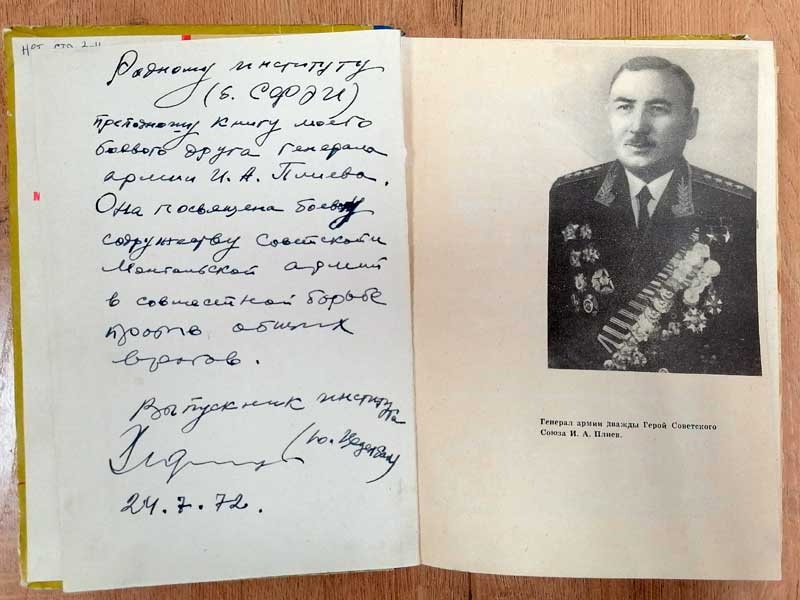 Родному институту
(б. СФДИ)
преподношу книгу моего
боевого друга генерала
армии И. А. Плиева.
Она посвящена боевому
содружеству Советской и
Монгольской армий
в совместной борьбе
против общих
врагов.
Выпускник института
(Ю. Цеденбал)
24.7.72.
Генерал армии дважды Герой Советского
Союза И. А. Плиев.